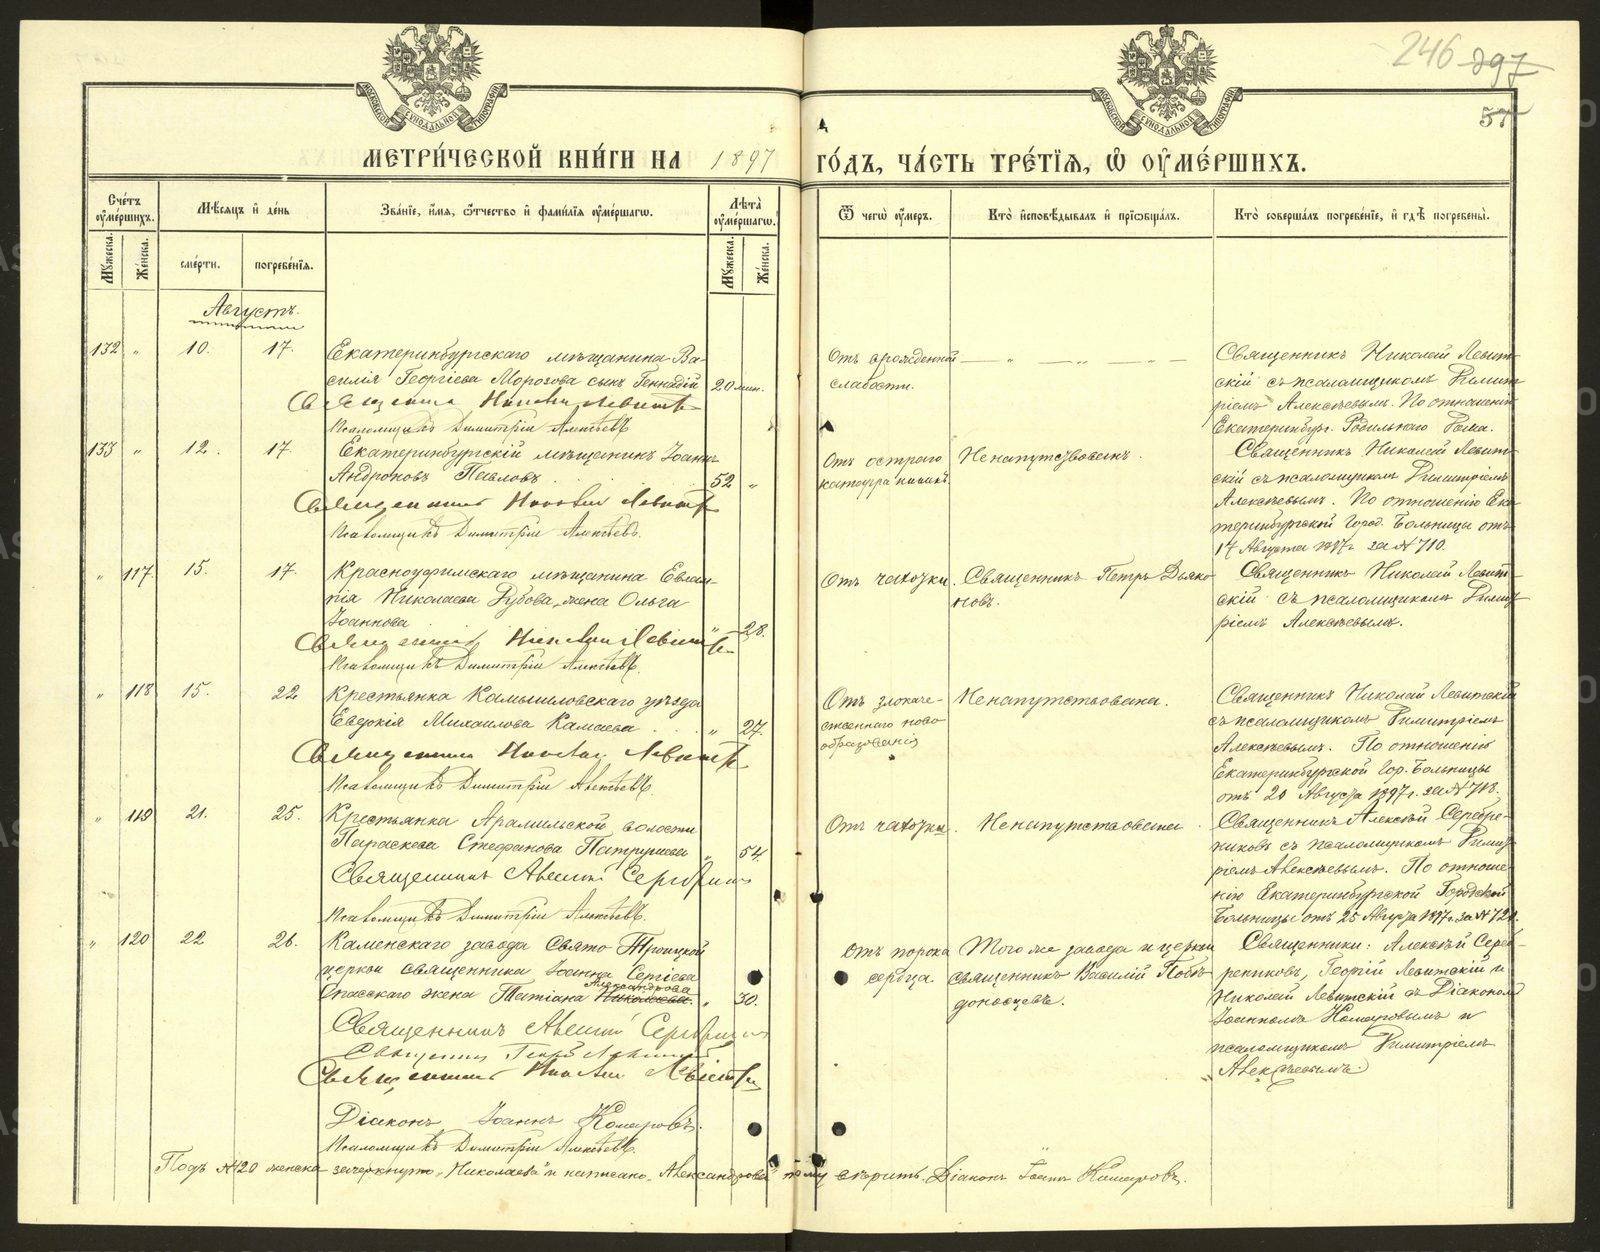 246 297
57
МОСКОВСКОЙ СУНОДАЛЬНОЙ ТИПОГРАФІИ
МОСКОВСКОЙ СУНОДАЛЬНОЙ ТИПОГРАФІИ
МЕТРИ́ЧЕСКОЙ КНИ́ГИ НА 1897 ГО́ДЪ, ЧА́СТЬ ТРЕ́ТІЯ, Ѡ ОУМЕ́РШИХЪ.
Сче́тъ оуме́ршихъ.
Мꙋжеска.
Же́нска.
Мѣ́сяцъ и де́нь
сме́рти.
погребе́нїя.
Зва́нїе, и́мя, ѻ́тчество и фами́лїя оуме́ршагѡ.
Лѣ́та оуме́ршагѡ.
Мꙋжеска.
Же́нска.
Ѿ чегѡ̀ оу́меръ.
Кто̀ исповѣ́дывалъ и прїѡбща́лъ.
Кто̀ соверша́лъ погребе́нїе, и гдѣ̀ погребены̀.
Августъ.
132 " 10. 17.
Екатеринбургскаго мѣщанина Ва-
силія Георгіева Морозова сынъ Геннадій 20 мин.
Священникъ Николай Левитскій
Псаломщикъ Димитрій Алексѣевъ
Отъ врожденной
слабости.
— " — " — " —
Священникъ Николай Левит-
скій съ псаломщикомъ Димит-
ріемъ Алексѣевымъ. По отношенію
Екатеринбург. Родильнаго Дома.
133 " 12. 17.
Екатеринбургскій мѣщанинъ Іоаннъ
Андроновъ Павловъ 52 "
Священникъ Николай Левитскій
Псаломщикъ Димитрій Алексѣевъ.
Отъ остраго
катарра кишекъ
Ненапутствованъ.
Священникъ Николай Левит-
скій съ псаломщикомъ Димитріемъ
Алексѣевымъ. По отношенію Ека-
теринбургской Город. Больницы отъ
17 Августа 1897 г. за № 710.
" 117. 15. 17.
Красноуфимскаго мѣщанина Евлам-
пія Николаева Рубова, жена Ольга
Іоаннова " 28.
Священникъ Николай Левитскій
Псаломщикъ Димитрій Алексѣевъ.
Отъ чахотки.
Священникъ Петръ Дьяко-
новъ.
Священникъ Николай Левит-
скій съ псаломщикомъ Димит-
ріемъ Алексѣевымъ.
" 118 15. 22
Крестьянка Камышловскаго уѣзда
Евдокія Михаилова Камаева " 27.
Священникъ Николай Левитскій
Псаломщикъ Димитрій Алексѣевъ
Отъ злокаче-
ственнаго ново
образованія
Ненапутствована.
Священникъ Николай Левитскій
съ псаломщикомъ Димитріемъ
Алексѣевымъ. По отношенію
Екатеринбургской Гор. Больницы
отъ 20 Августа 1897 г. за № 718.
" 119 21. 25.
Крестьянка Арамильской волости
Параскева Стефанова Патрушева " 54.
Священникъ Алексій Серебрениковъ
Псаломщикъ Димитрій Алексѣевъ.
Отъ чахотки.
Ненапутствована
Священникъ Алексѣй Серебре-
никовъ съ псаломщикомъ Димит-
ріемъ Алексѣевымъ. По отноше-
нію Екатеринбургской Городской
Больницы отъ 25 Августа 1897 г. за № 721.
" 120 22 26.
Каменскаго завода Свято-Троицкой
церкви священника Іоанна Сетіева
Александрова
Спасскаго жена Татіана Николаева " 30.
Священникъ Алексій Серебрениковъ
Священникъ Георгій Левитскій
Священникъ Николай Левитскій
Діаконъ Іоаннъ Комаровъ.
Псаломщикъ Димитрій Алексѣевъ
Отъ порока
сердца.
Того же завода и церкви
священникъ Василій Побѣ-
доносцевъ.
Священники: Алексѣй Сереб-
рениковъ, Георгій Левитскій и
Николай Левитскій съ Діакономъ
Іоанномъ Комаровымъ и
псаломщикомъ Димитріемъ
Алексѣевымъ.
Подъ № 120 женска зачеркнуто "Николаева" и написано "Александрова" тому вѣрить. Діаконъ Іоаннъ Комаровъ.